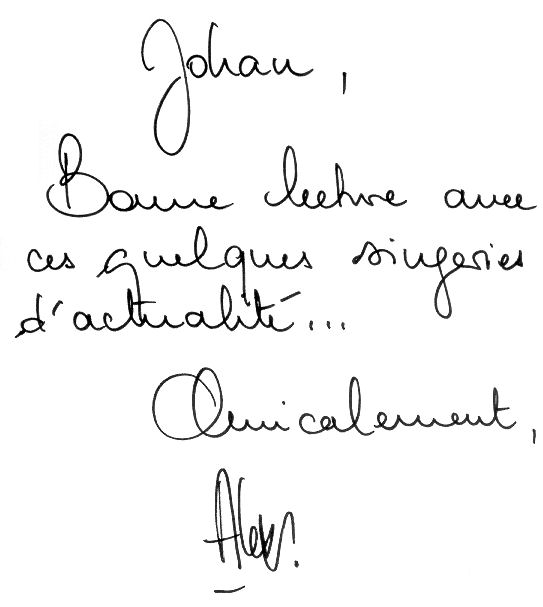 Johan,
Bonne lecture avec
ces quelques singeries
d'actualité...
Amicalement,
Alex.